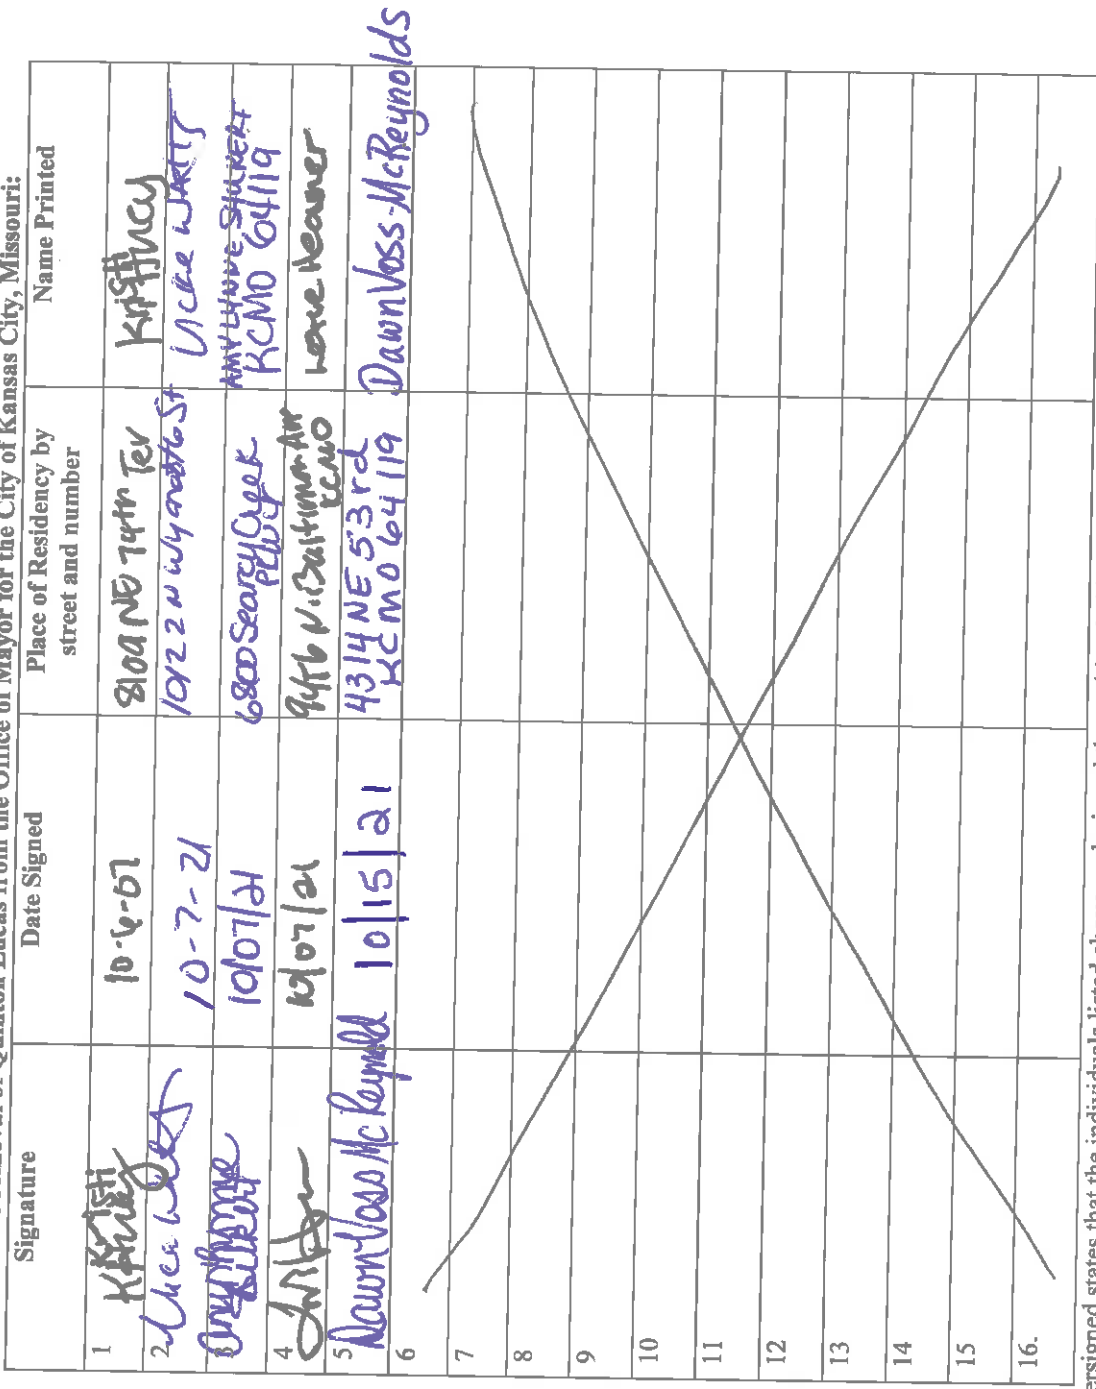 Quinton Lucas from the Office of Mayor for the City of Kansas City, Missouri:
Signature Date Signed Place of Residency by street and number Name Printed
1 Kristi 10-6-07 8109 NE 74th Ter Kristi
2. 10-7-21 10122 N Wyandotte St Vickie Watts
3 10/07/21 6800 Searcy Creek PKWY AMY LYNNE SHUKERT KCMO 64119
4 10/07/21 9456 N. Baltimore Ave KCMO
5 Dawn Voss McReynold 10/15/21 4314 NE 53rd KCMO 64119 Dawn Voss-McReynolds
6
7
8
9
10
11
12
13
14
15
16.
ersigned states that the individuals listed